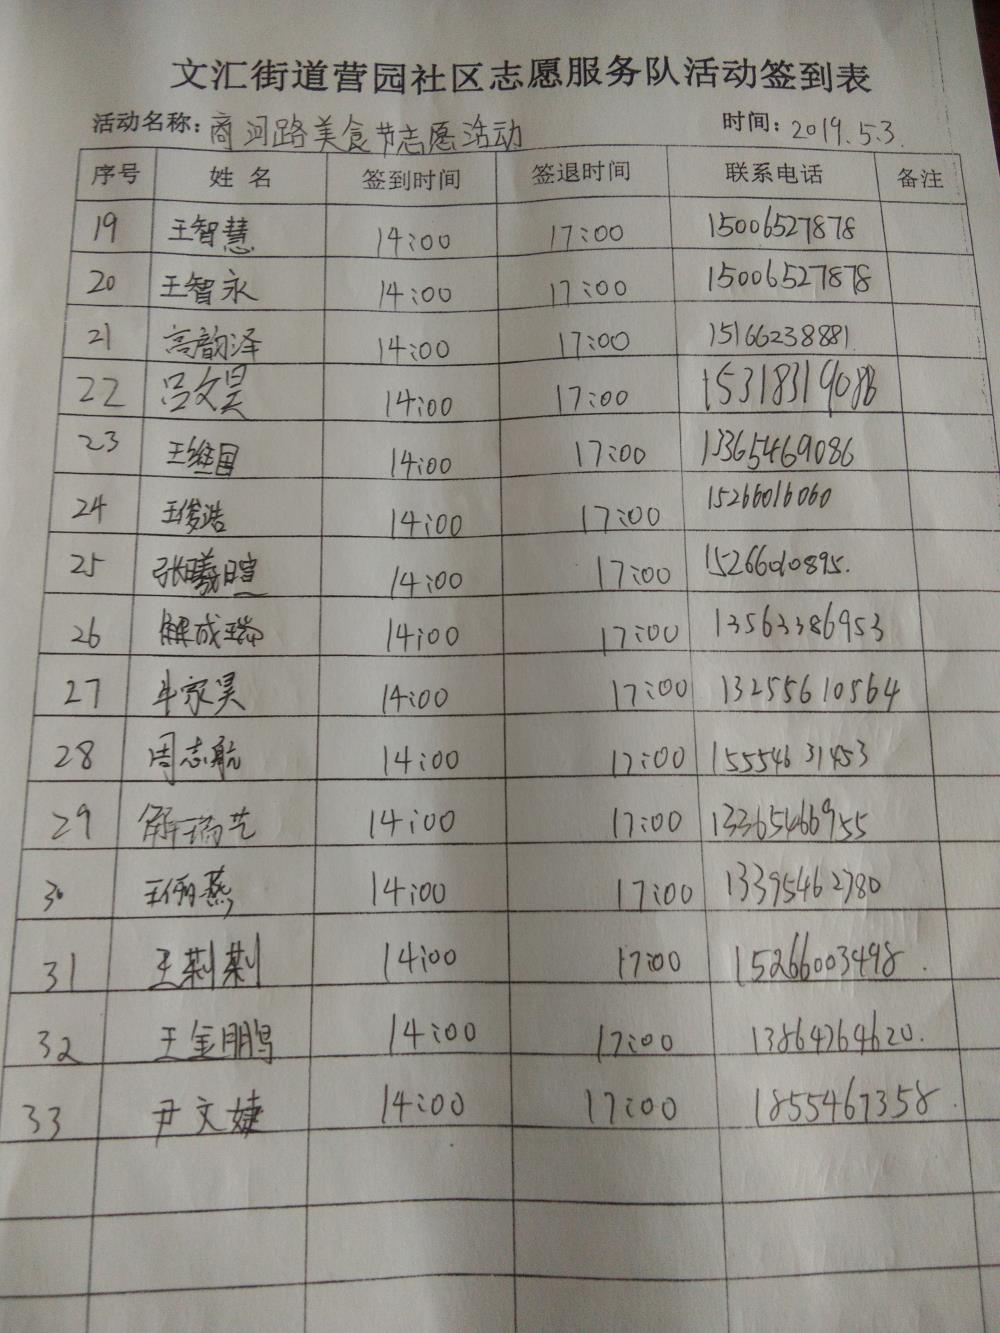 文汇街道营园社区志愿服务队活动签到表
活动名称：商河路美食节志愿活动 时间：2019.5.3.
序号 姓名 签到时间 签退时间 联系电话 备注
19 王智慧 14:00 17:00 15006527878
20 王智永 14:00 17:00 15006527878
21 高韵泽 14:00 17:00 15166238881
22 吕文昊 14:00 17:00
23 王继国 14:00 17:00 13365469086
24 王俊浩 14:00 17:00 15266016060
25 张曦暄 14:00 17:00 15266010895.
26 解成瑞 14:00 17:00 13563386953
27 牛家昊 14:00 17:00 13255610564
28 周志航 14:00 17:00 15554631453
29 解瑞艺 14:00 17:00 13365466955
30 14:00 17:00 13395462780
31 王荆荆 14:00 17:00 15266003498.
32 王金鹏 14:00 17:00 13864764620.
33 尹文婕 14:00 17:00 1855467358.